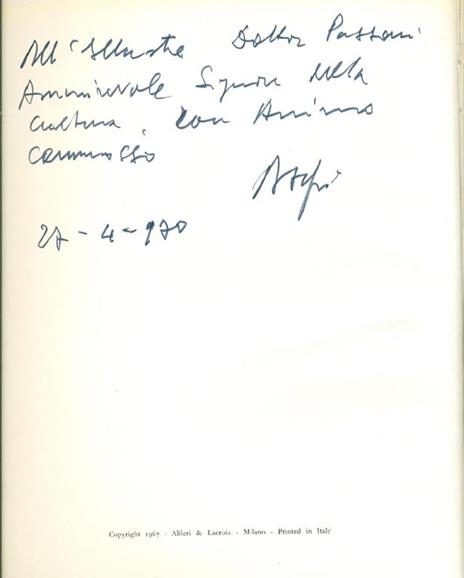 All'Illustre Dottor Passoni
Ammirevole Signore della
Cultura, con Animo
commosso
27-4-970
Copyright 1967 - Alfieri & Lacroix - Milano - Printed in Italy